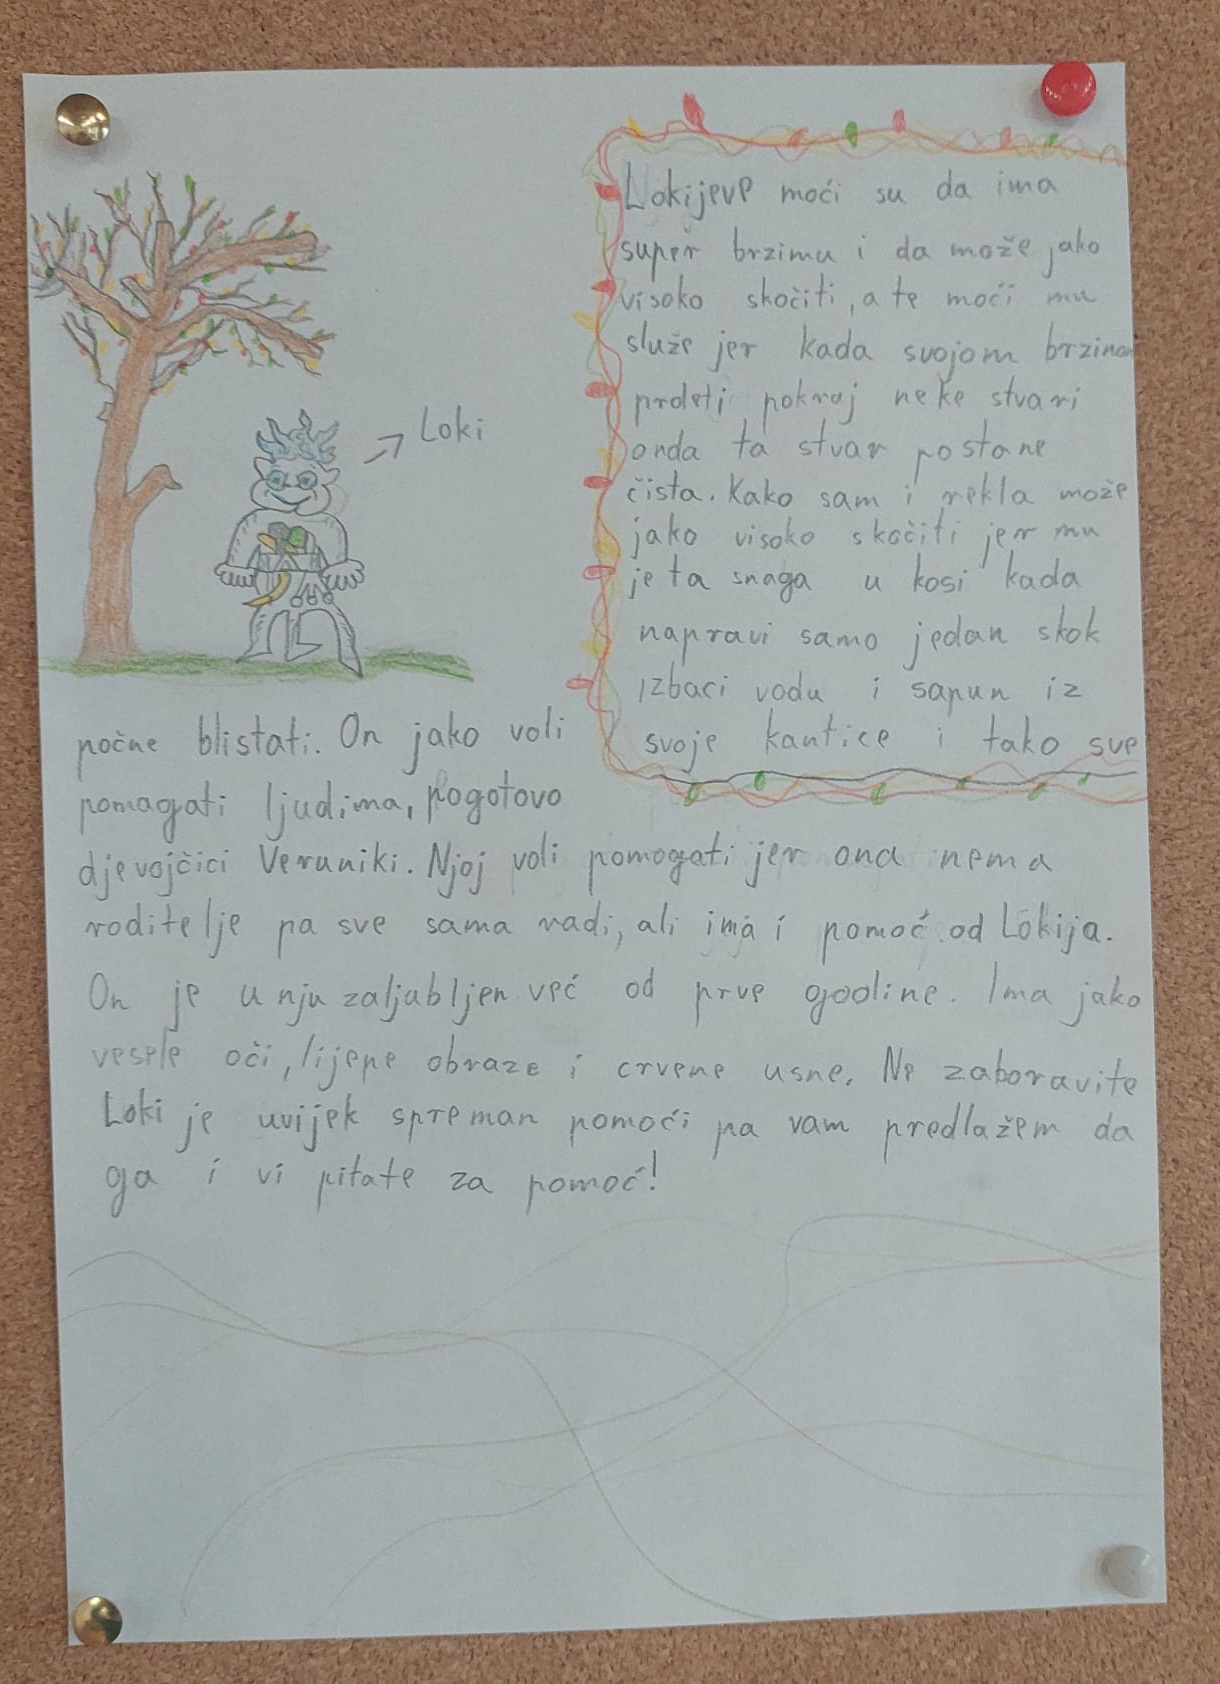 Loki
Lokijeve moći su da ima
super brzinu i da može jako
visoko skočiti, a te moći mu
služe jer kada svojom brzinom
proleti pokraj neke stvari
onda ta stvar postane
čista. Kako sam i rekla može
jako visoko skočiti jer mu
je ta snaga u kosi kada
napravi samo jedan skok
izbaci vodu i sapun iz
svoje kantice i tako sve
počne blistati. On jako voli
pomagati ljudima, pogotovo
djevojčici Veruniki. Njoj voli pomogati jer ona nema
roditelje pa sve sama radi, ali ima i pomoć od Lokija.
On je u nju zaljubljen već od prve godine. Ima jako
vesele oči, lijepe obraze i crvene usne. Ne zaboravite
Loki je uvijek spreman pomoći pa vam predlažem da
ga i vi pitate za pomoć!